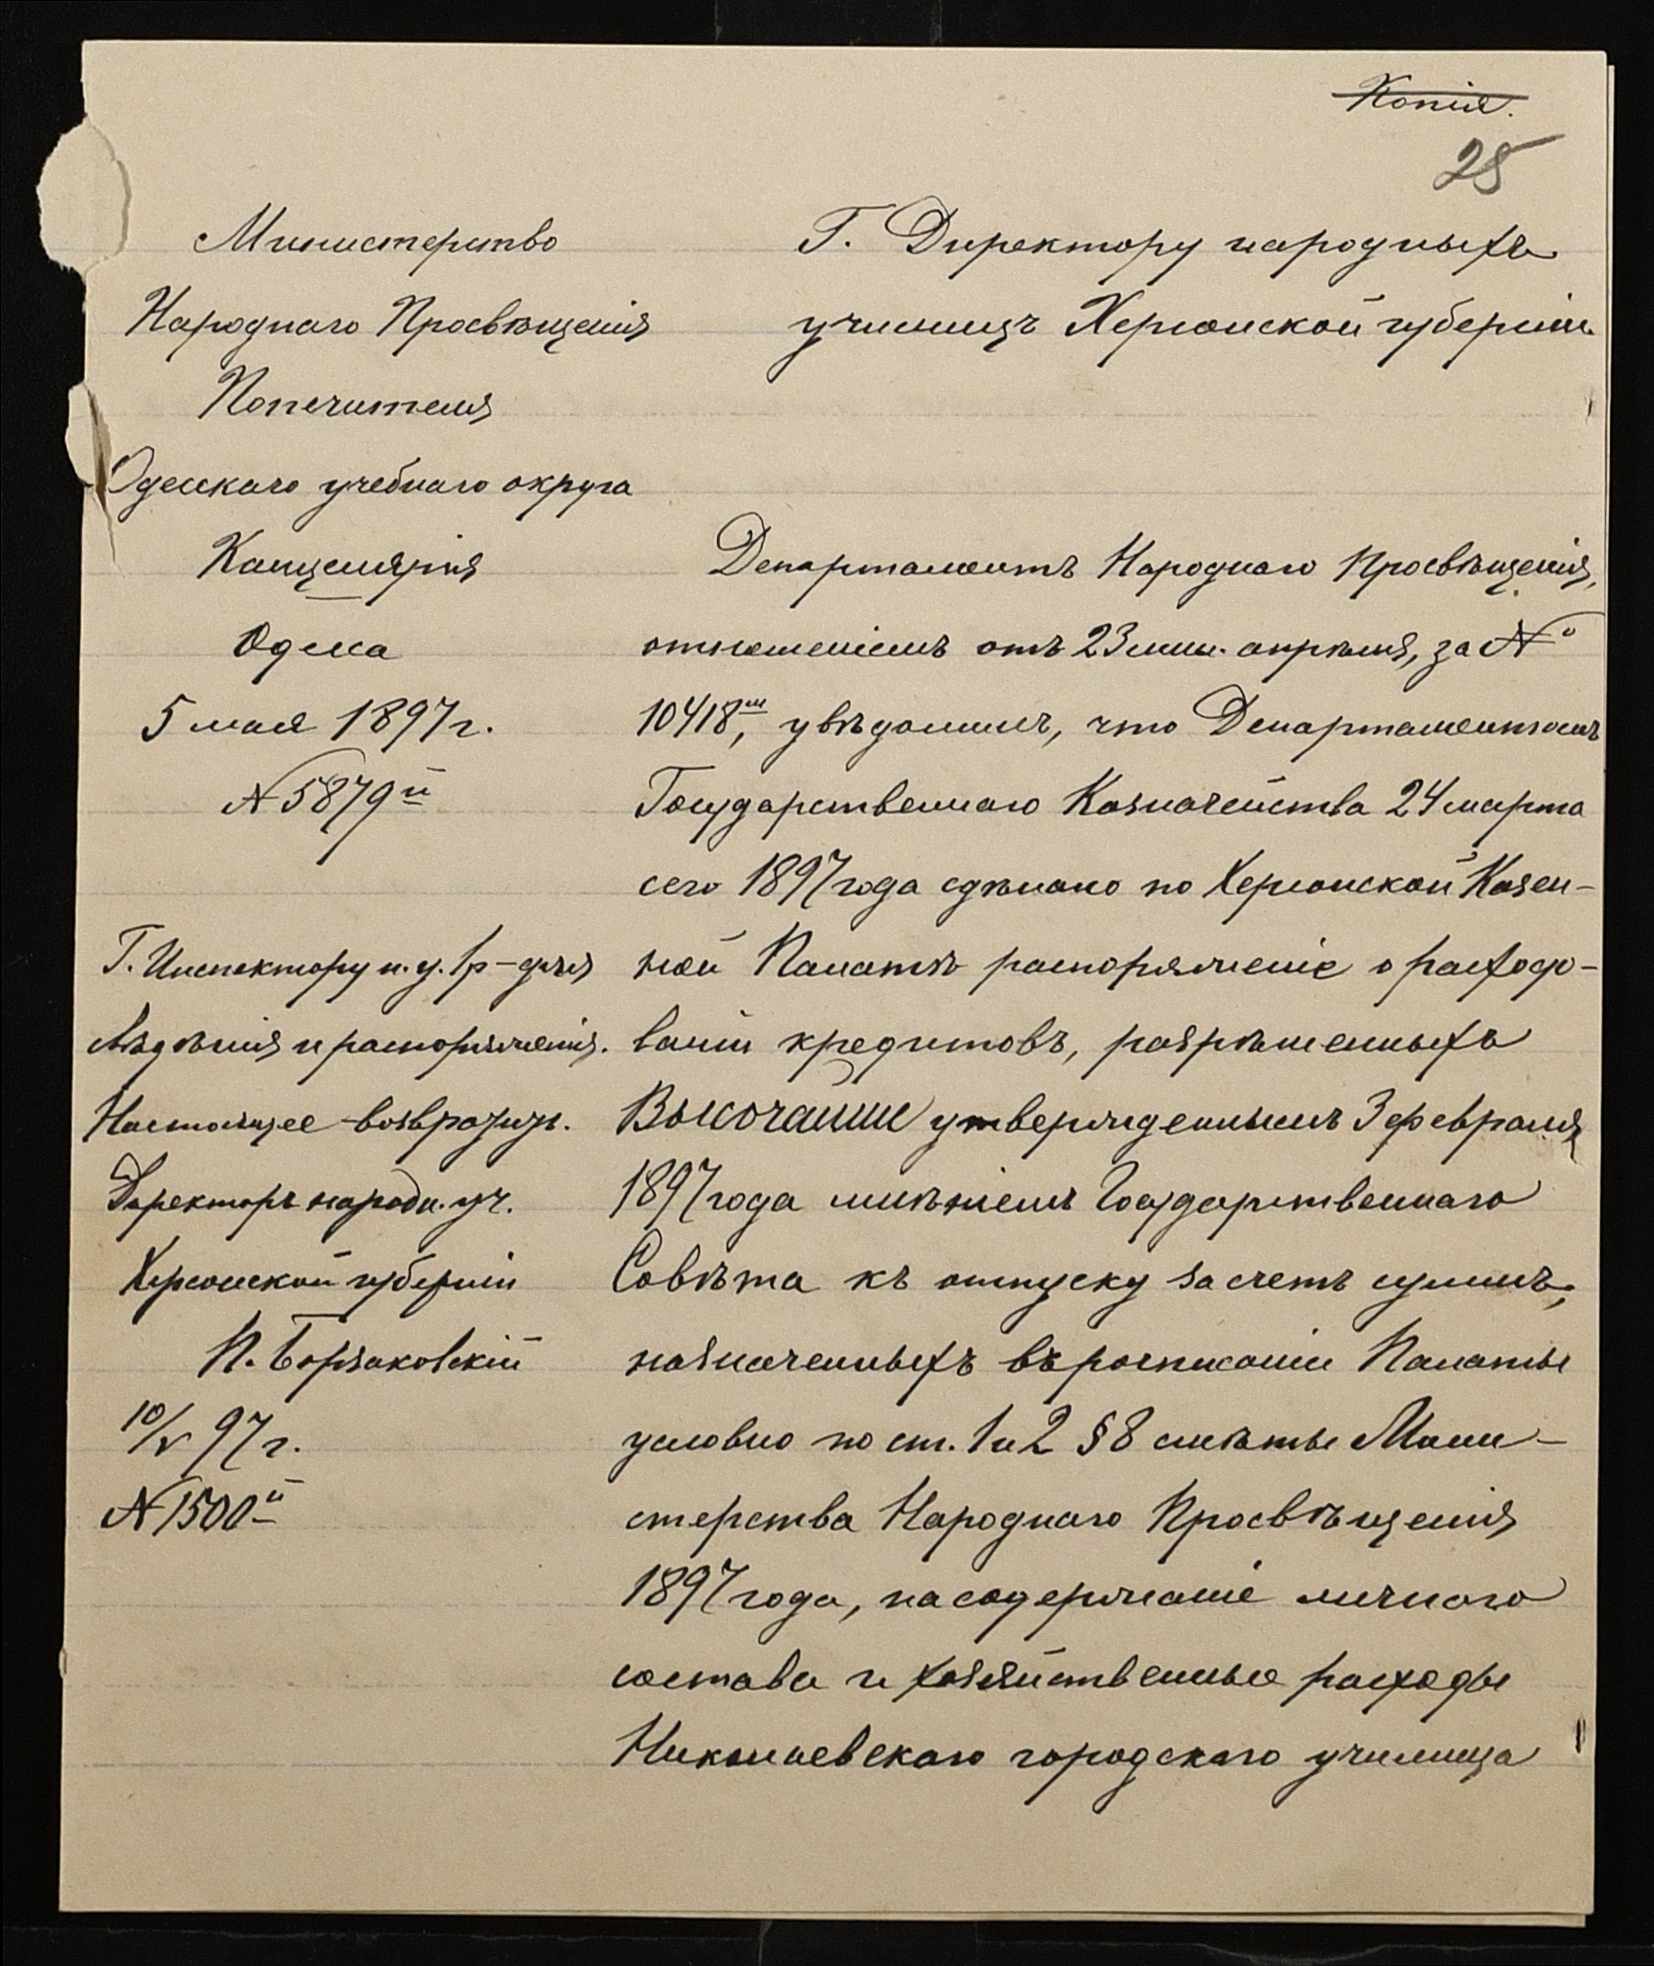 Копія.
25
Министерство
Народнаго Просвѣщенія
Попечителя
Одесскаго учебнаго округа
Канцелярія
Одесса
5 мая 1897 г.
№ 5879й
Г. Инспектору н. у. 1 р - для
свѣдѣнія и распоряженія.
Настоящее возвратить.
Директоръ народн. уч.
Херсонской губерніи
П. Борзаковскій
10/V 97 г.
№ 1500й
Г. Директору народныхъ
училищъ Херсонской губерніи.
Департаментъ Народнаго Просвѣщенія,
отношеніемъ отъ 23 мин. апрѣля, за №
10418мъ, увѣдомилъ, что Департаментомъ
Государственнаго Казначейства 24 марта
сего 1897 года сдѣлано по Херсонской Казен-
ной Палатѣ распоряженіе о расходо-
ваніи кредитовъ, разрѣшенныхъ
Высочайше утвержденнымъ 3 февраля
1897 года мнѣніемъ Государственнаго
Совѣта къ отпуску за счетъ суммъ,
назначенныхъ въ росписаніи Палаты
условно по ст. 1 и 2 § 8 смѣты Мини-
стерства Народнаго Просвѣщенія
1897 года, на содержаніе личнаго
состава и хозяйственные расходы
Николаевскаго городскаго училища